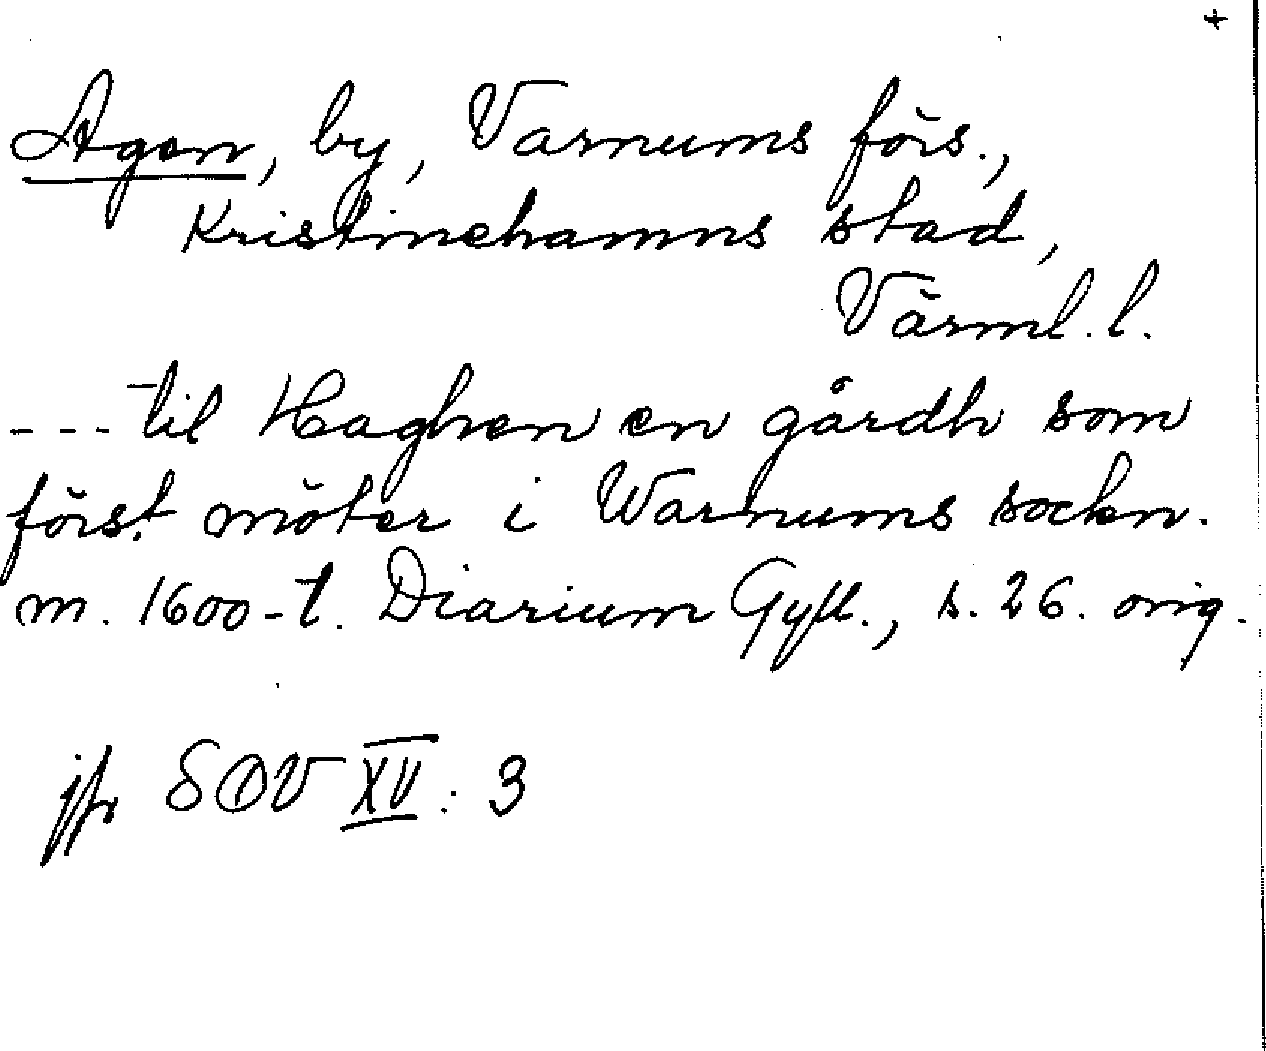 +
Agen, by, Varnums förs.,
Kristinehamns stad,
Värml. l.
--- til Haghen en gårdh som
först möter i Warnums sockn.
m. 1600-t. Diarium Gyll., s. 26. orig.
jfr SOV XV: 3